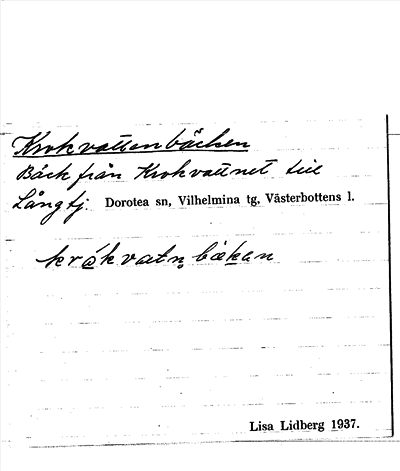 Krokvattenbäcken
Bäck från Krokvattnet till
Långtj. Dorotea sn, Vilhelmina tg, Västerbottens l.
krǻkvatn̥bækan
Lisa Lidberg 1937.